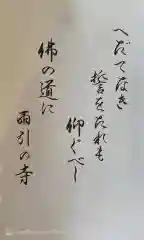 へだてなき
誓をたれも
仰ぐべし
佛の道に
雨引の寺